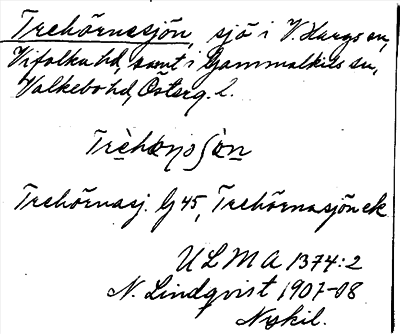 Trehörnasjön, sjö i V. Hargs sn,
Vifolka hd, samt i Gammalkils sn,
Valkebo hd, Österg. l.
Trehörnasj. G 45, Trehörnasjön ek
ULMA 1374:2
N. Lindqvist 1907-08
Nykil.